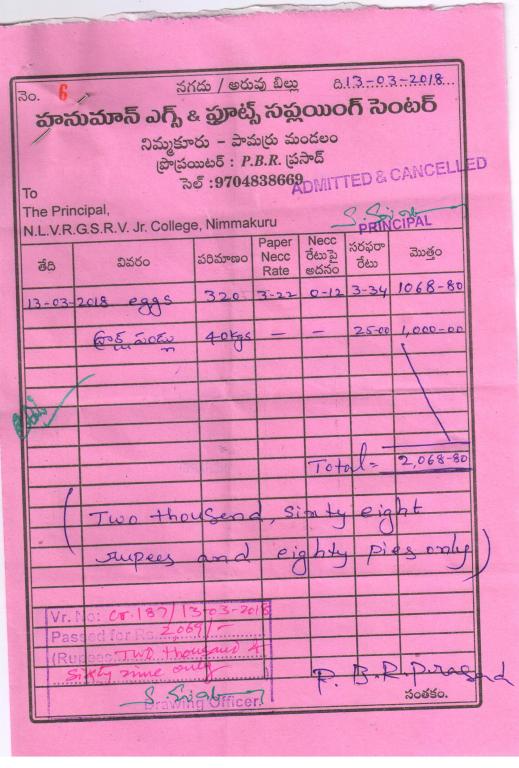 నగదు / అరువు బిల్లు
నెం. 6
ది.13-03-2018
హనుమాన్ ఎగ్స్ & ఫ్రూట్స్ సప్లయింగ్ సెంటర్
నిమ్మకూరు - పామర్రు మండలం
ప్రొప్రయిటర్ : P.B.R. ప్రసాద్
సెల్ :9704838669
ADMITTED & CANCELLED
To
The Principal,
PRINCIPAL
N.L.V.R.G.S.R.V. Jr. College, Nimmakuru
తేది వివరం పరిమాణం Paper Necc Rate Necc రేటుపై అదనం సరఫరా రేటు మొత్తం
13-03-2018 eggs 320 3-22 0-12 3-34 1068-80
పండ్లు 40kgs - - 25-00 1,000-00
Total= 2,068-80
(Two thousand, sixty eight
rupees and eighty pies only)
Vr. No: Cr.137/13-03-2018
Passed for Rs. 2,069/-
(Rupees Two thousand &
sixty nine only )
Drawing Officer.
P. B. R. Prasad
సంతకం.